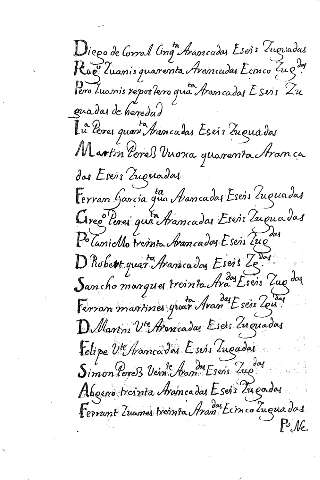 Diego de Corral Cinqta Arancadas Eseis Zuguadas
Rago Zuanis quarenta Arancadas Ecinco Zugdas
Pero Zuanis repostero quata Arancadas Eseis Zu
guadas de heredad
Iua Peres quarta Arancadas Eseis Zuguadas
Martin Peres Vuoxa quarenta Arança
das Eseis Zuguadas
Ferran Garcia quata Arancadas Eseis Zuguadas
Grego Peres quata Arancadas Eseis Zuguadas
Po treinta Arancadas Eseis Zugdas
D Robert quarta Arancadas Eseis Zgdas
Sancho marques treinta Aradas Eseis Zugdas
Ferran martines quarta Arandas Eseis Zgudas
D Martin Vte Arancadas Eseis Zuguadas
Felipe Vte Arancadas Eseis Zugadas
Simon Peres Veinte Arandas Eseis Zugdas
Abgeno treinta Arancadas Eseis Zugadas
Ferrant Zuanes treinta Arandas Ecinco Zuguadas
Po Ne